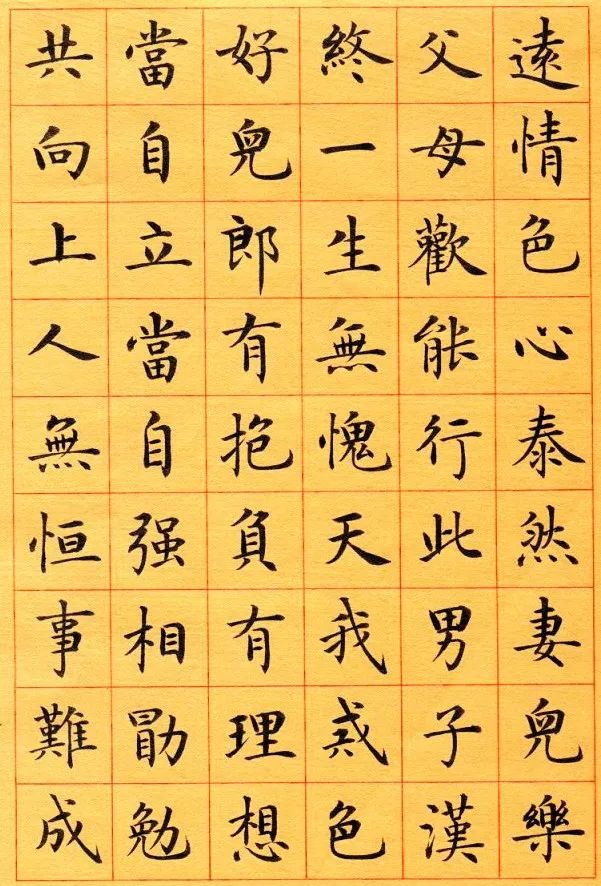 遠情色心泰然妻兒樂
父母歡能行此男子漢
終一生無愧天我戒色
好兒郎有抱負有理想
當自立當自强相勖勉
共向上人無恒事難成